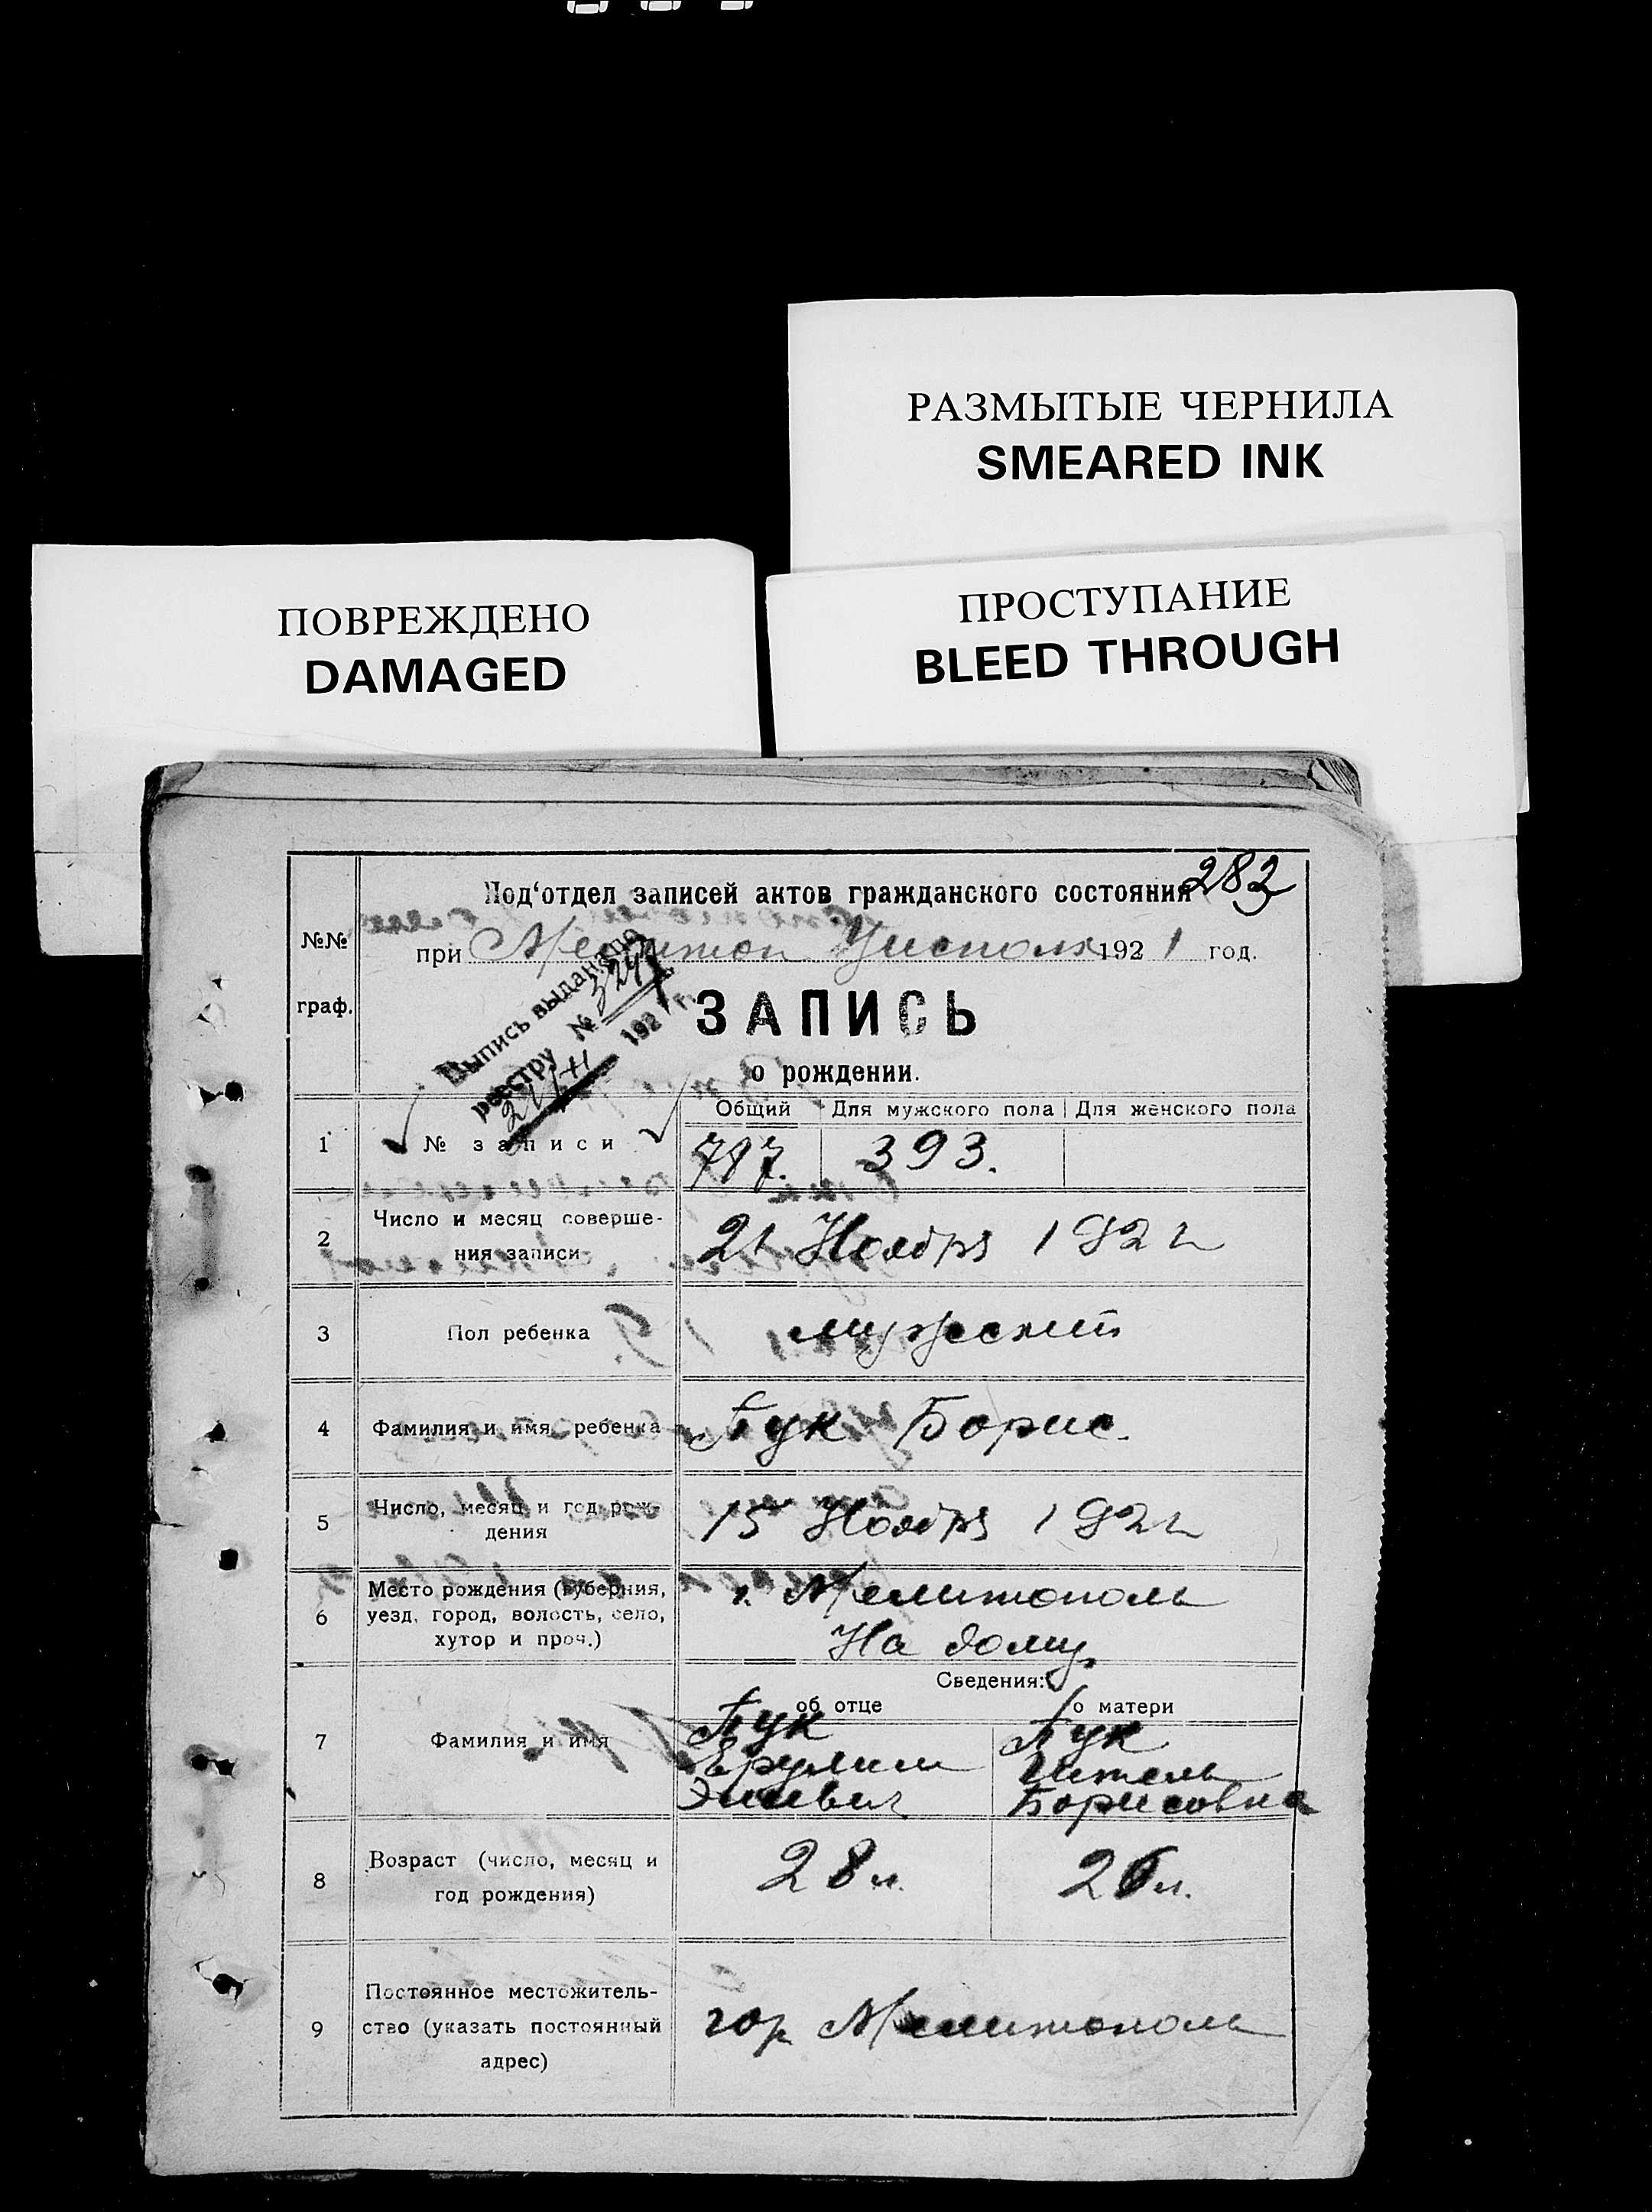 РАЗМЫТЫЕ ЧЕРНИЛА
SMEARED INK
ПОВРЕЖДЕНО
DAMAGED
ПРОСТУПАНИЕ
BLEED THROUGH
282
Под‘отдел записей актов гражданского состояния
№№
граф.
при Мелитоп 1921 год.
Выпись выдана по
реестру № 3247
192 г.
ЗАПИСЬ
о рождении.
Общий Для мужского пола Для женского пола
1 № записи 787. 393.
2 Число и месяц соверше-
ния записи
21 Ноября 1921
3 Пол ребенка мужеский
4 Фамилия и имя ребенка Бук Борис.
5 Число, месяц и год рож-
дения
15 Ноября 1921
6 Место рождения (губерния,
уезд, город, волость, село,
хутор и проч.)
г. Мелитополь
На дому
Сведения:
об отце о матери
7 Фамилия и имя
Бук Бук
Борисовна
8 Возраст (число, месяц и
год рождения)
28 л. 26 л.
9 Постоянное местожитель-
ство (указать постоянный
адрес)
гор Мелитополь